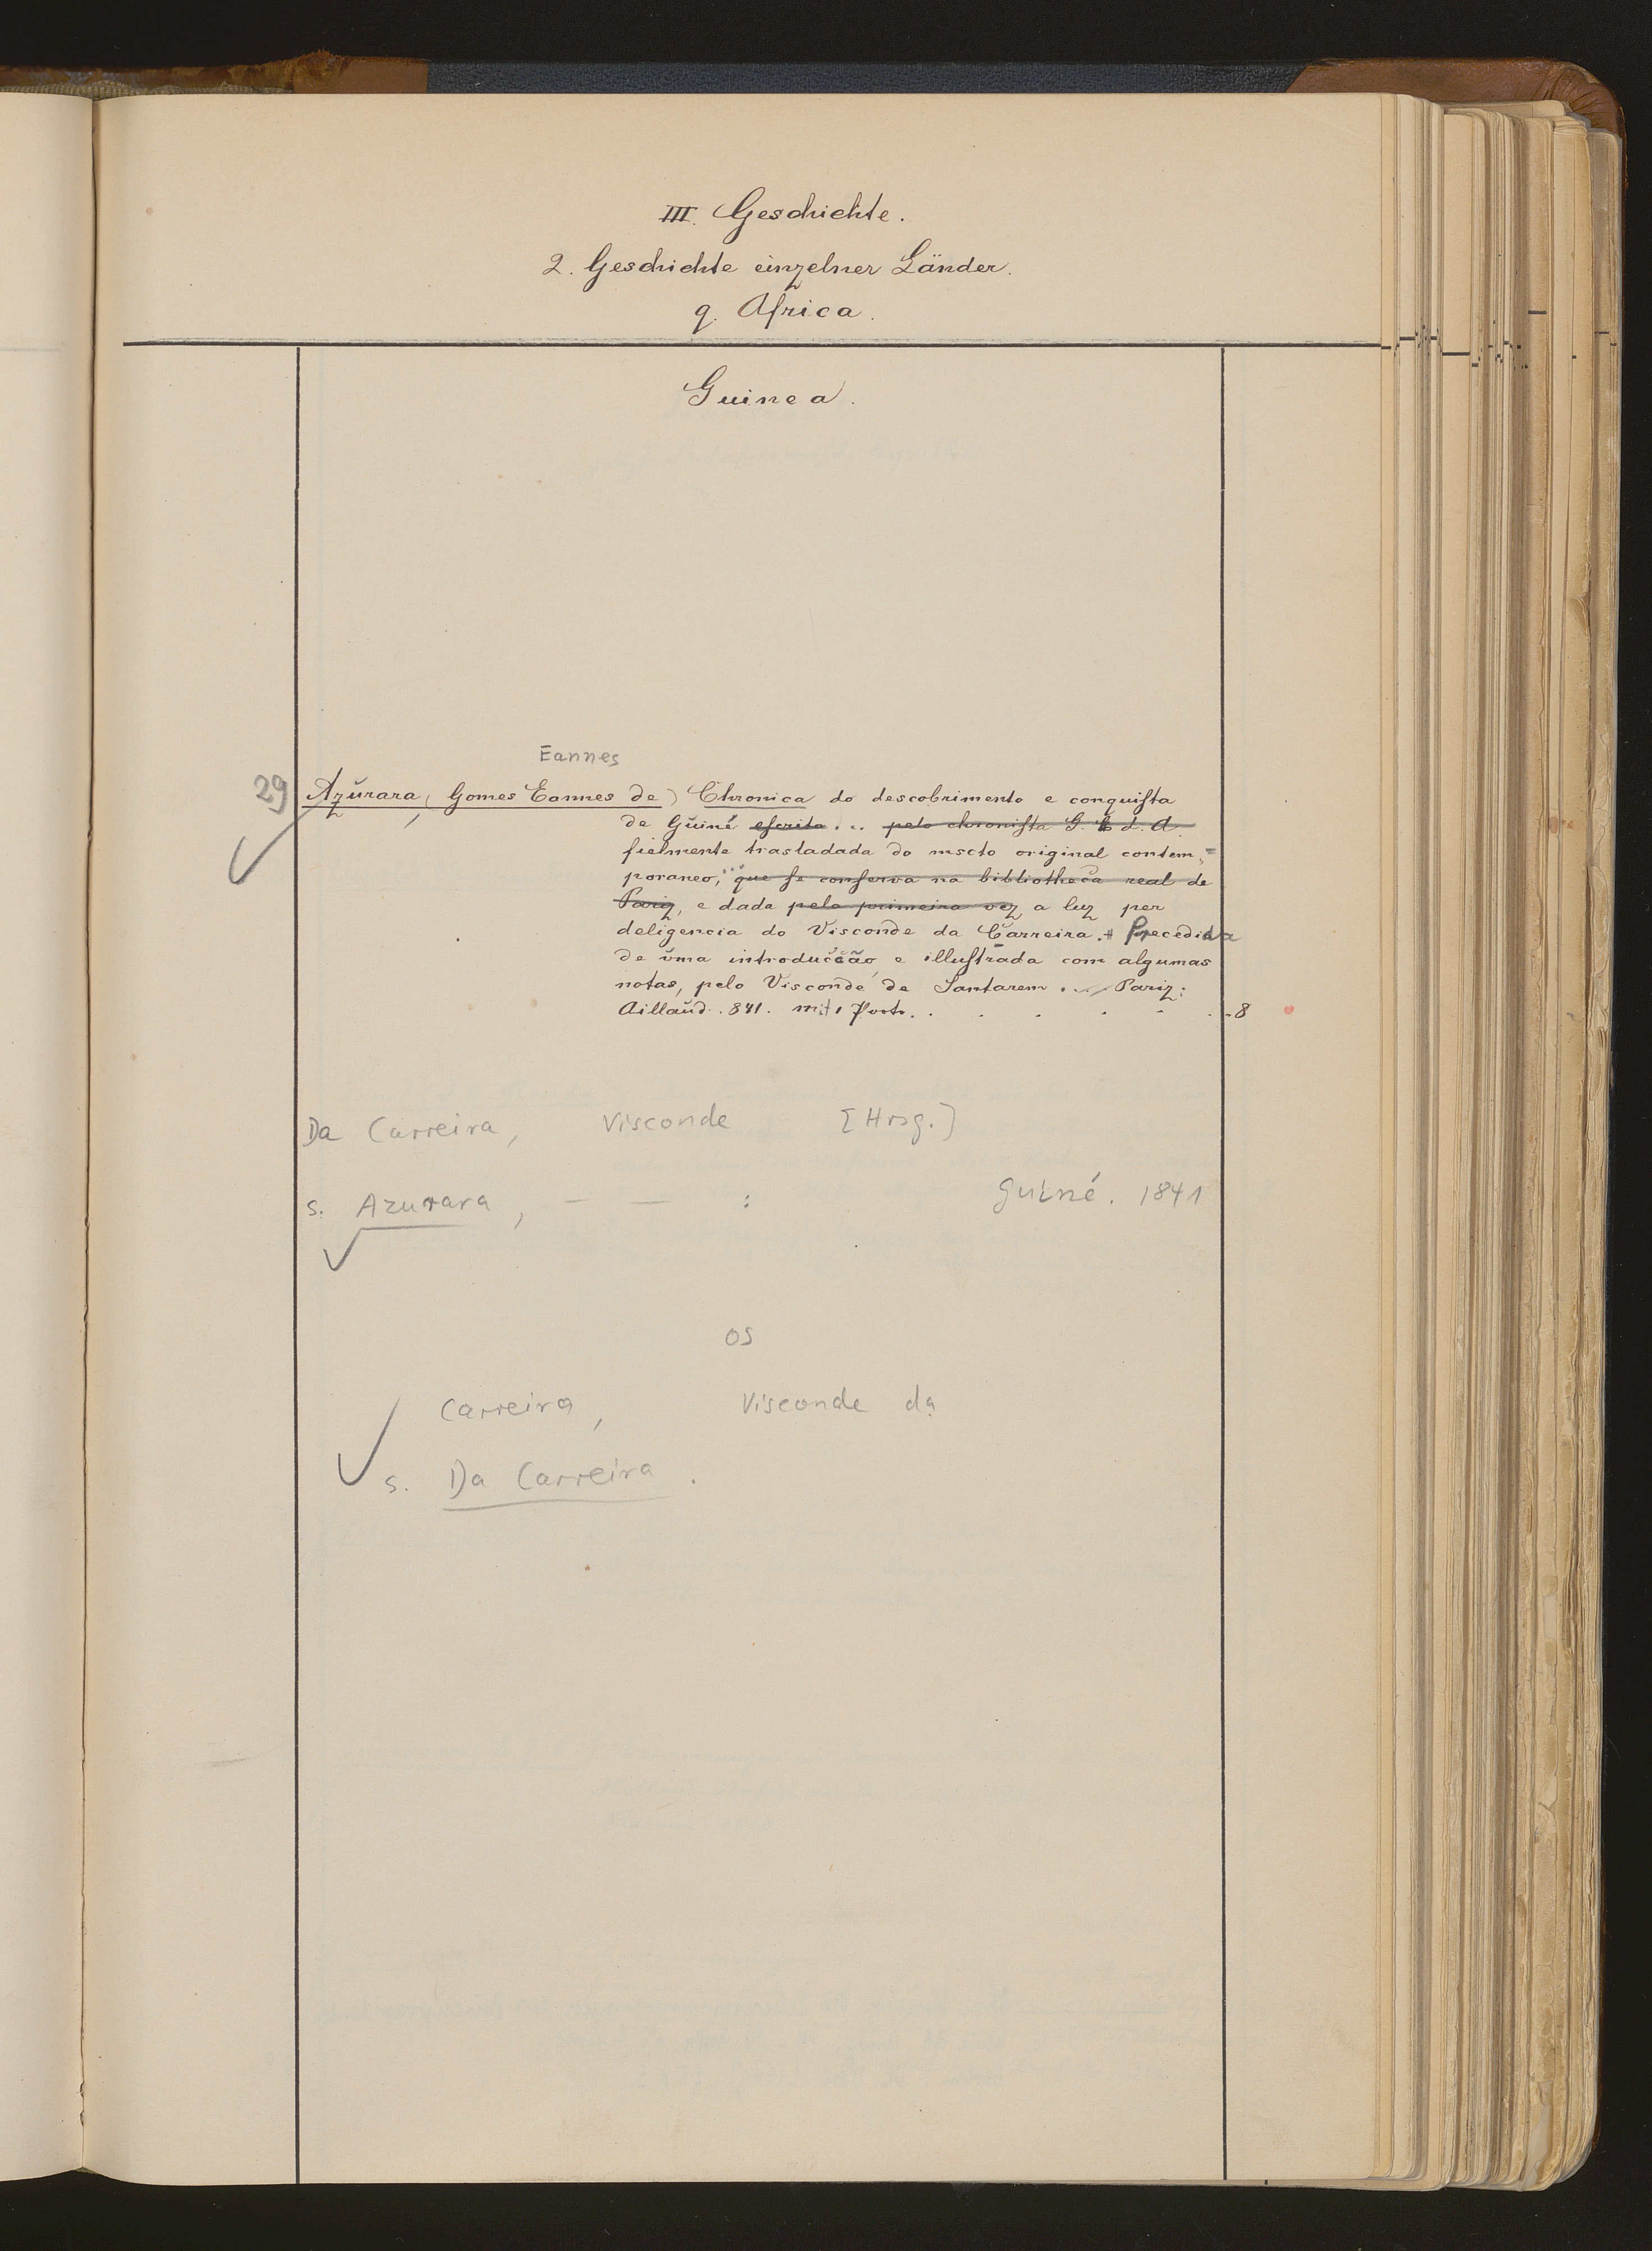 III. Geschichte.
2. Geschichte einzelner Länder.
q. Africa.
Guinea.
Eannes
29 Azŭrara, (Gomes Eannes de) Chronica do descobrimento e conquista
de Gŭiné escrita ... pelo chronista G. E. d. A.
fielmente trasladada do mscto original contem=
poraneo, ... que se conserva na bibliotheca real de
Pariz, e dada pela primeira vez a luz per
deligencia do Visconde da Carreira. Precedida
de ŭma introducção, e illustrada com algumas
notas, pelo Visconde de Santarem ... Pariz:
Aillaŭd. 841. mit 1 Portr. . . . . . . 8
Da Carreira, Visconde [Hrsg.]
s. Azurara, — — : Guiné. 1841
OS
Carreira, Visconde da
s. Da Carreira.